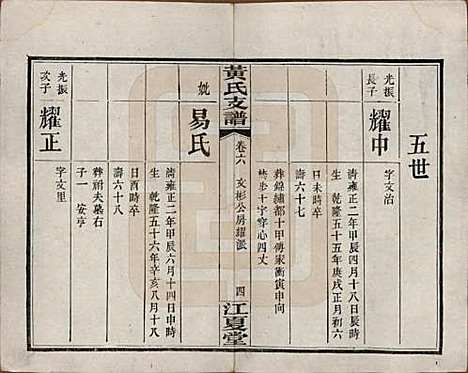 五世
光振
長子
耀中
字文治
清雍正二年甲辰四月十八日辰時
生乾隆五十五年庚戌正月初六
日未時卒
壽六十七
葬錦繡都十甲傅家衝寅申向
十字穿心四丈
黃氏支譜
卷六
文彬公房耀派
四
江夏堂
妣
易氏
清雍正二年甲辰六月十四日申時
生乾隆五十六年辛亥八月十八
日酉時卒
壽六十八
葬祔夫墓右
子一
安亨
光振
次子
耀正
字文里